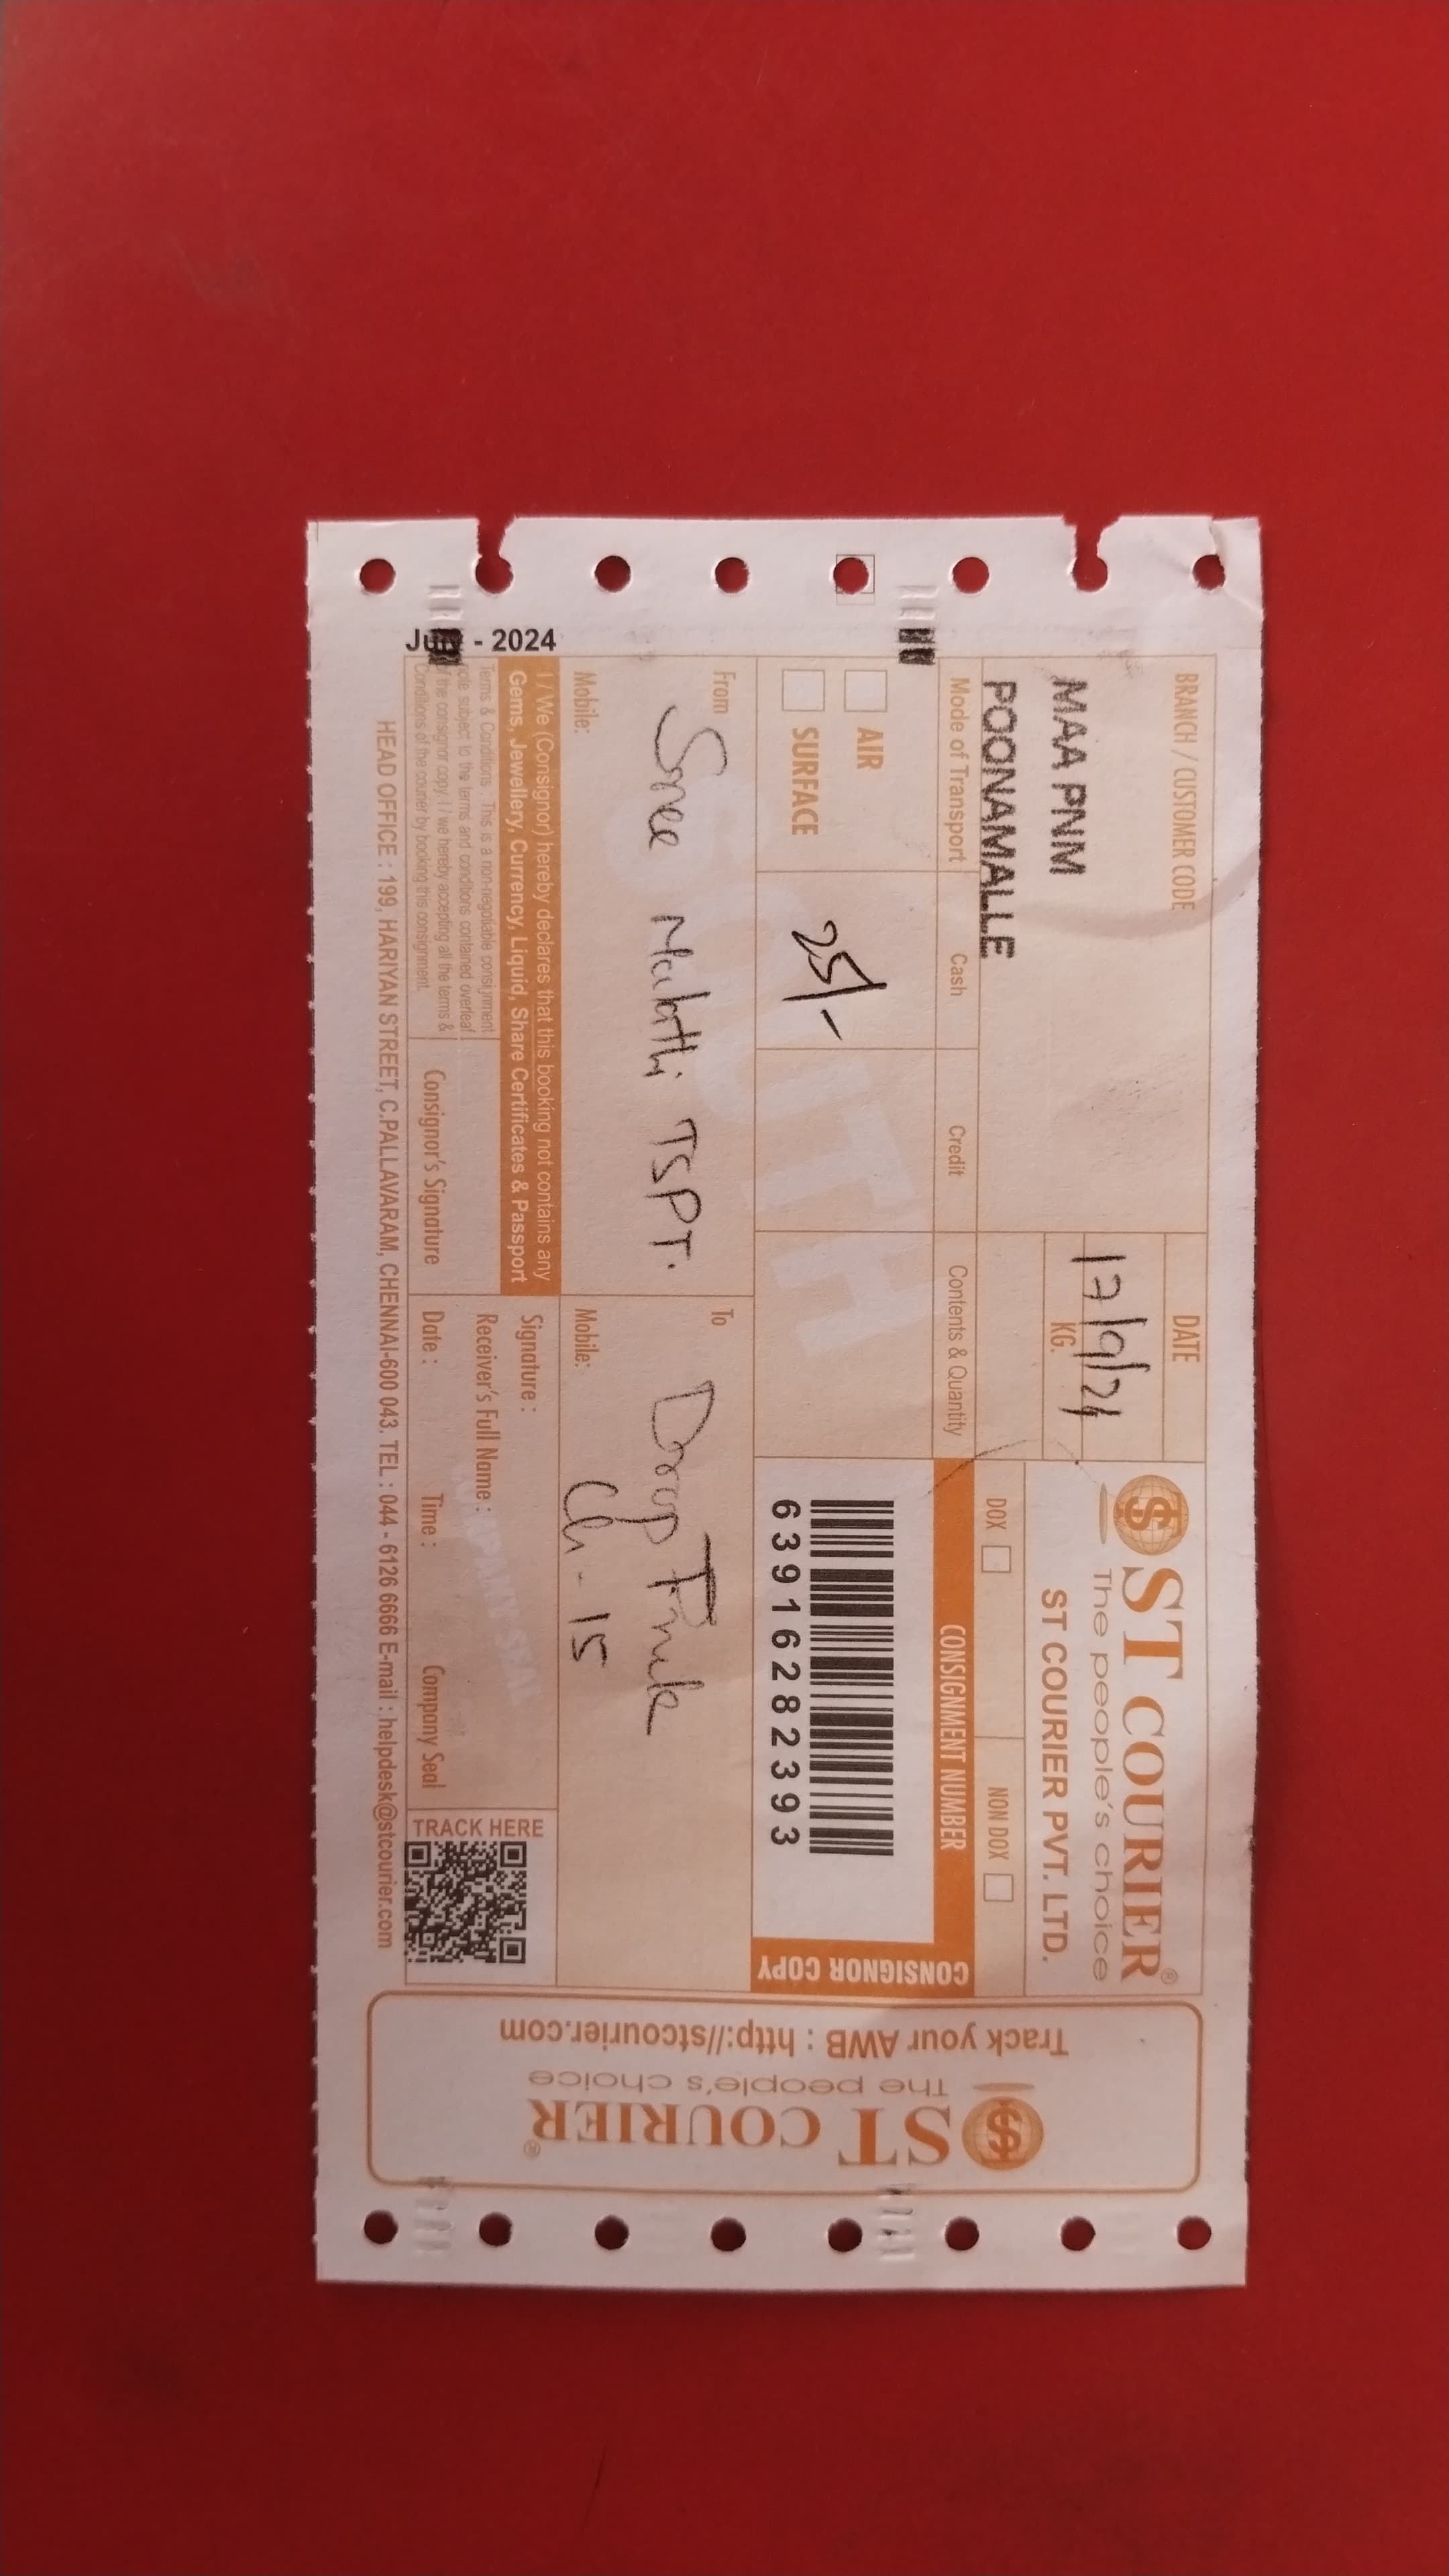 BRANCH / CUSTOMER CODE
MAA PNM
POONAMALLE
DATE
17/9/24
KG.
ST COURIER®
The people's choice
ST COURIER PVT. LTD.
DOX
NON DOX
Mode of Transport
Cash
Credit
Contents & Quantity
AIR
SURFACE
25/-
CONSIGNMENT NUMBER
63916282393
CONSIGNOR COPY
SOUTH
From
Sree TSPT.
Mobile:
To
Drop
Ch - 15
Mobile:
I / We (Consignor) hereby declares that this booking not contains any
Gems, Jewellery, Currency, Liquid, Share Certificates & Passport
Terms & Conditions : This is a non-negotiable consignment
note subject to the terms and conditions contained overleaf
of the consignor copy. I / we hereby accepting all the terms &
Conditions of the courier by booking this consignment.
Consignor's Signature
Signature :
Receiver's Full Name :
Date :
Time :
Company Seal
COMPANY SEAL
TRACK HERE
HEAD OFFICE : 199, HARIYAN STREET, C.PALLAVARAM, CHENNAI-600 043. TEL : 044 - 6126 6666 E-mail : helpdesk@stcourier.com
- 2024
ST COURIER®
The people's choice
Track your AWB : http://stcourier.com